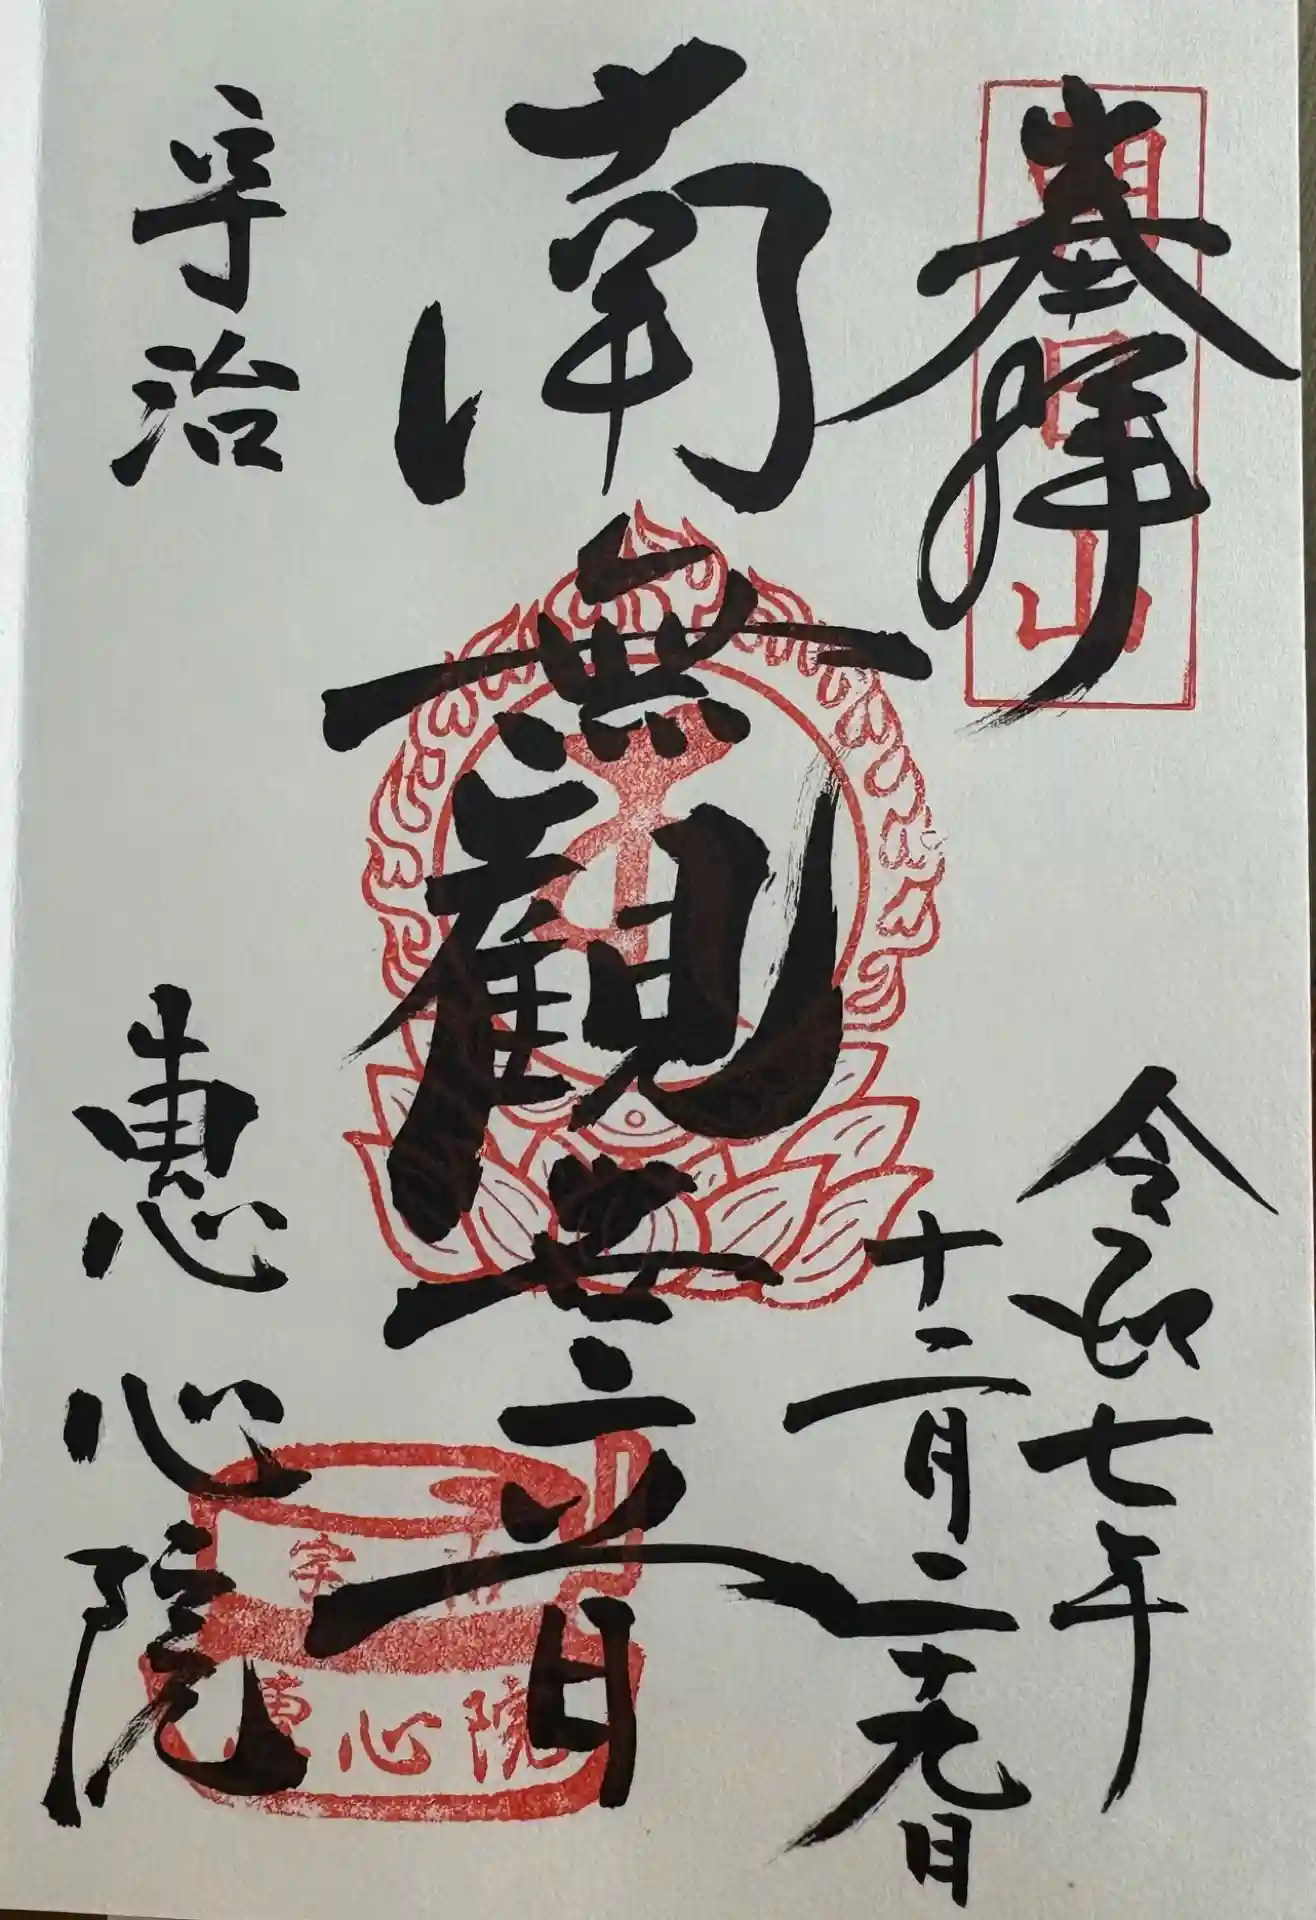 奉拝
朝日山
令和七年
十二月二十九日
南無観世音
宇治
惠心院
宇治
惠心院